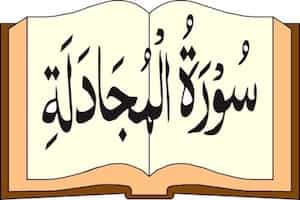 سُورَةُ الْمُجَادَلَةِ